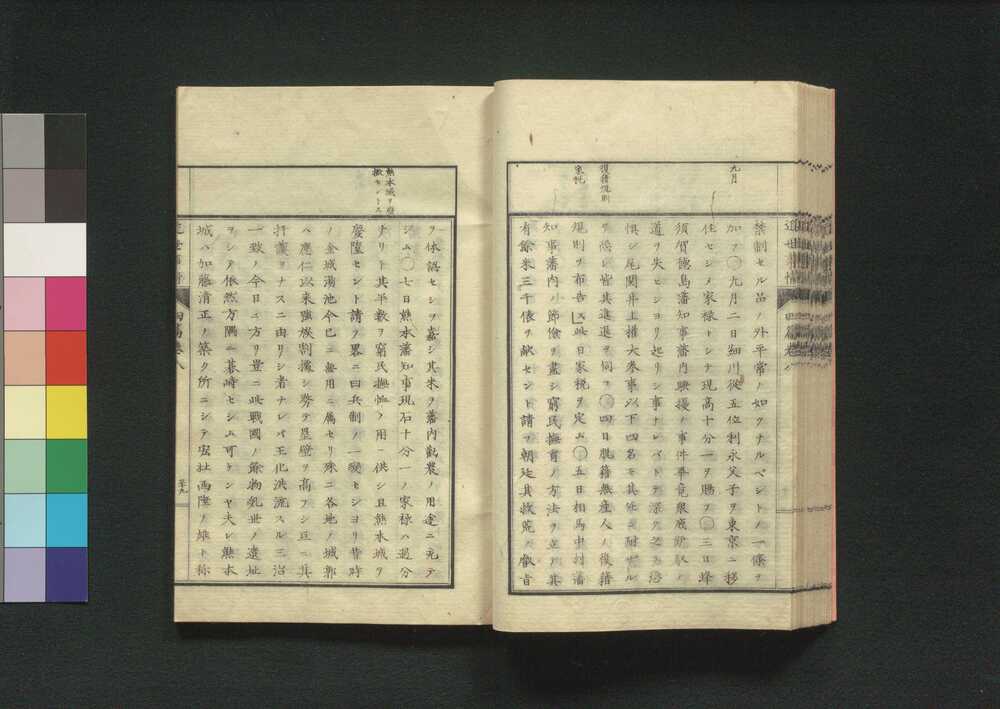 九月
復籍規則
家税
禁制セル品ノ外平常ノ如クナルベシトノ一條ヲ
加フ〇九月二日細川從五位利永父子ヲ東京ニ移
住セシメ家禄トシテ現高十分一ヲ賜フ〇三日蜂
須賀德島藩知事藩内騷擾ノ事件畢竟衆庶
道ヲ失ヒシヨリ起リシ事ナレバトテ深ク之ヲ恐
惧シ尾関井上権大參事以下四名モ其任ニ耐ヘザル
ヲ恐レ皆其進退ヲ伺フ〇四日脱籍無産人ノ復籍
規則ヲ布告ス此日家税ヲ定ム〇五日相馬中村藩
知事藩内ノ節儉ヲ盡シ窮民撫育ノ方法ヲ立テ其
有餘米三千俵ヲ献セント請フ朝廷其救荒ノ叡旨
熊本城ヲ廢
撤セントス
ヲ体認セシヲ嘉シ其米ヲ藩内勸農ノ用途ニ充テ
シム〇七日熊本藩知事現石十分一ノ家禄ハ過分
ナリト其半數ヲ窮民撫恤ノ用ニ供シ且熊本城ヲ
廢墮セント請フ畧ニ曰兵制ノ一變セシヨリ昔時
ノ金城湯池今已ニ無用ニ属セリ殊ニ各地ノ城郭
ハ應仁以来強族割據シ勞テ塁壁ヲ高フシ互ニ其
打護ヲナスニ由リシ者ナレバ王化洪流スル三治
一致ノ今日ニ方リ豈ニ此戰國ノ餘物乱世ノ遺址
ヲシテ依然方隅ニ碁峙セシム可ケンヤ夫レ熊本
城ハ加藤清正ノ築ク所ニシテ宏壯西陲ノ雄ト称
四篇巻八